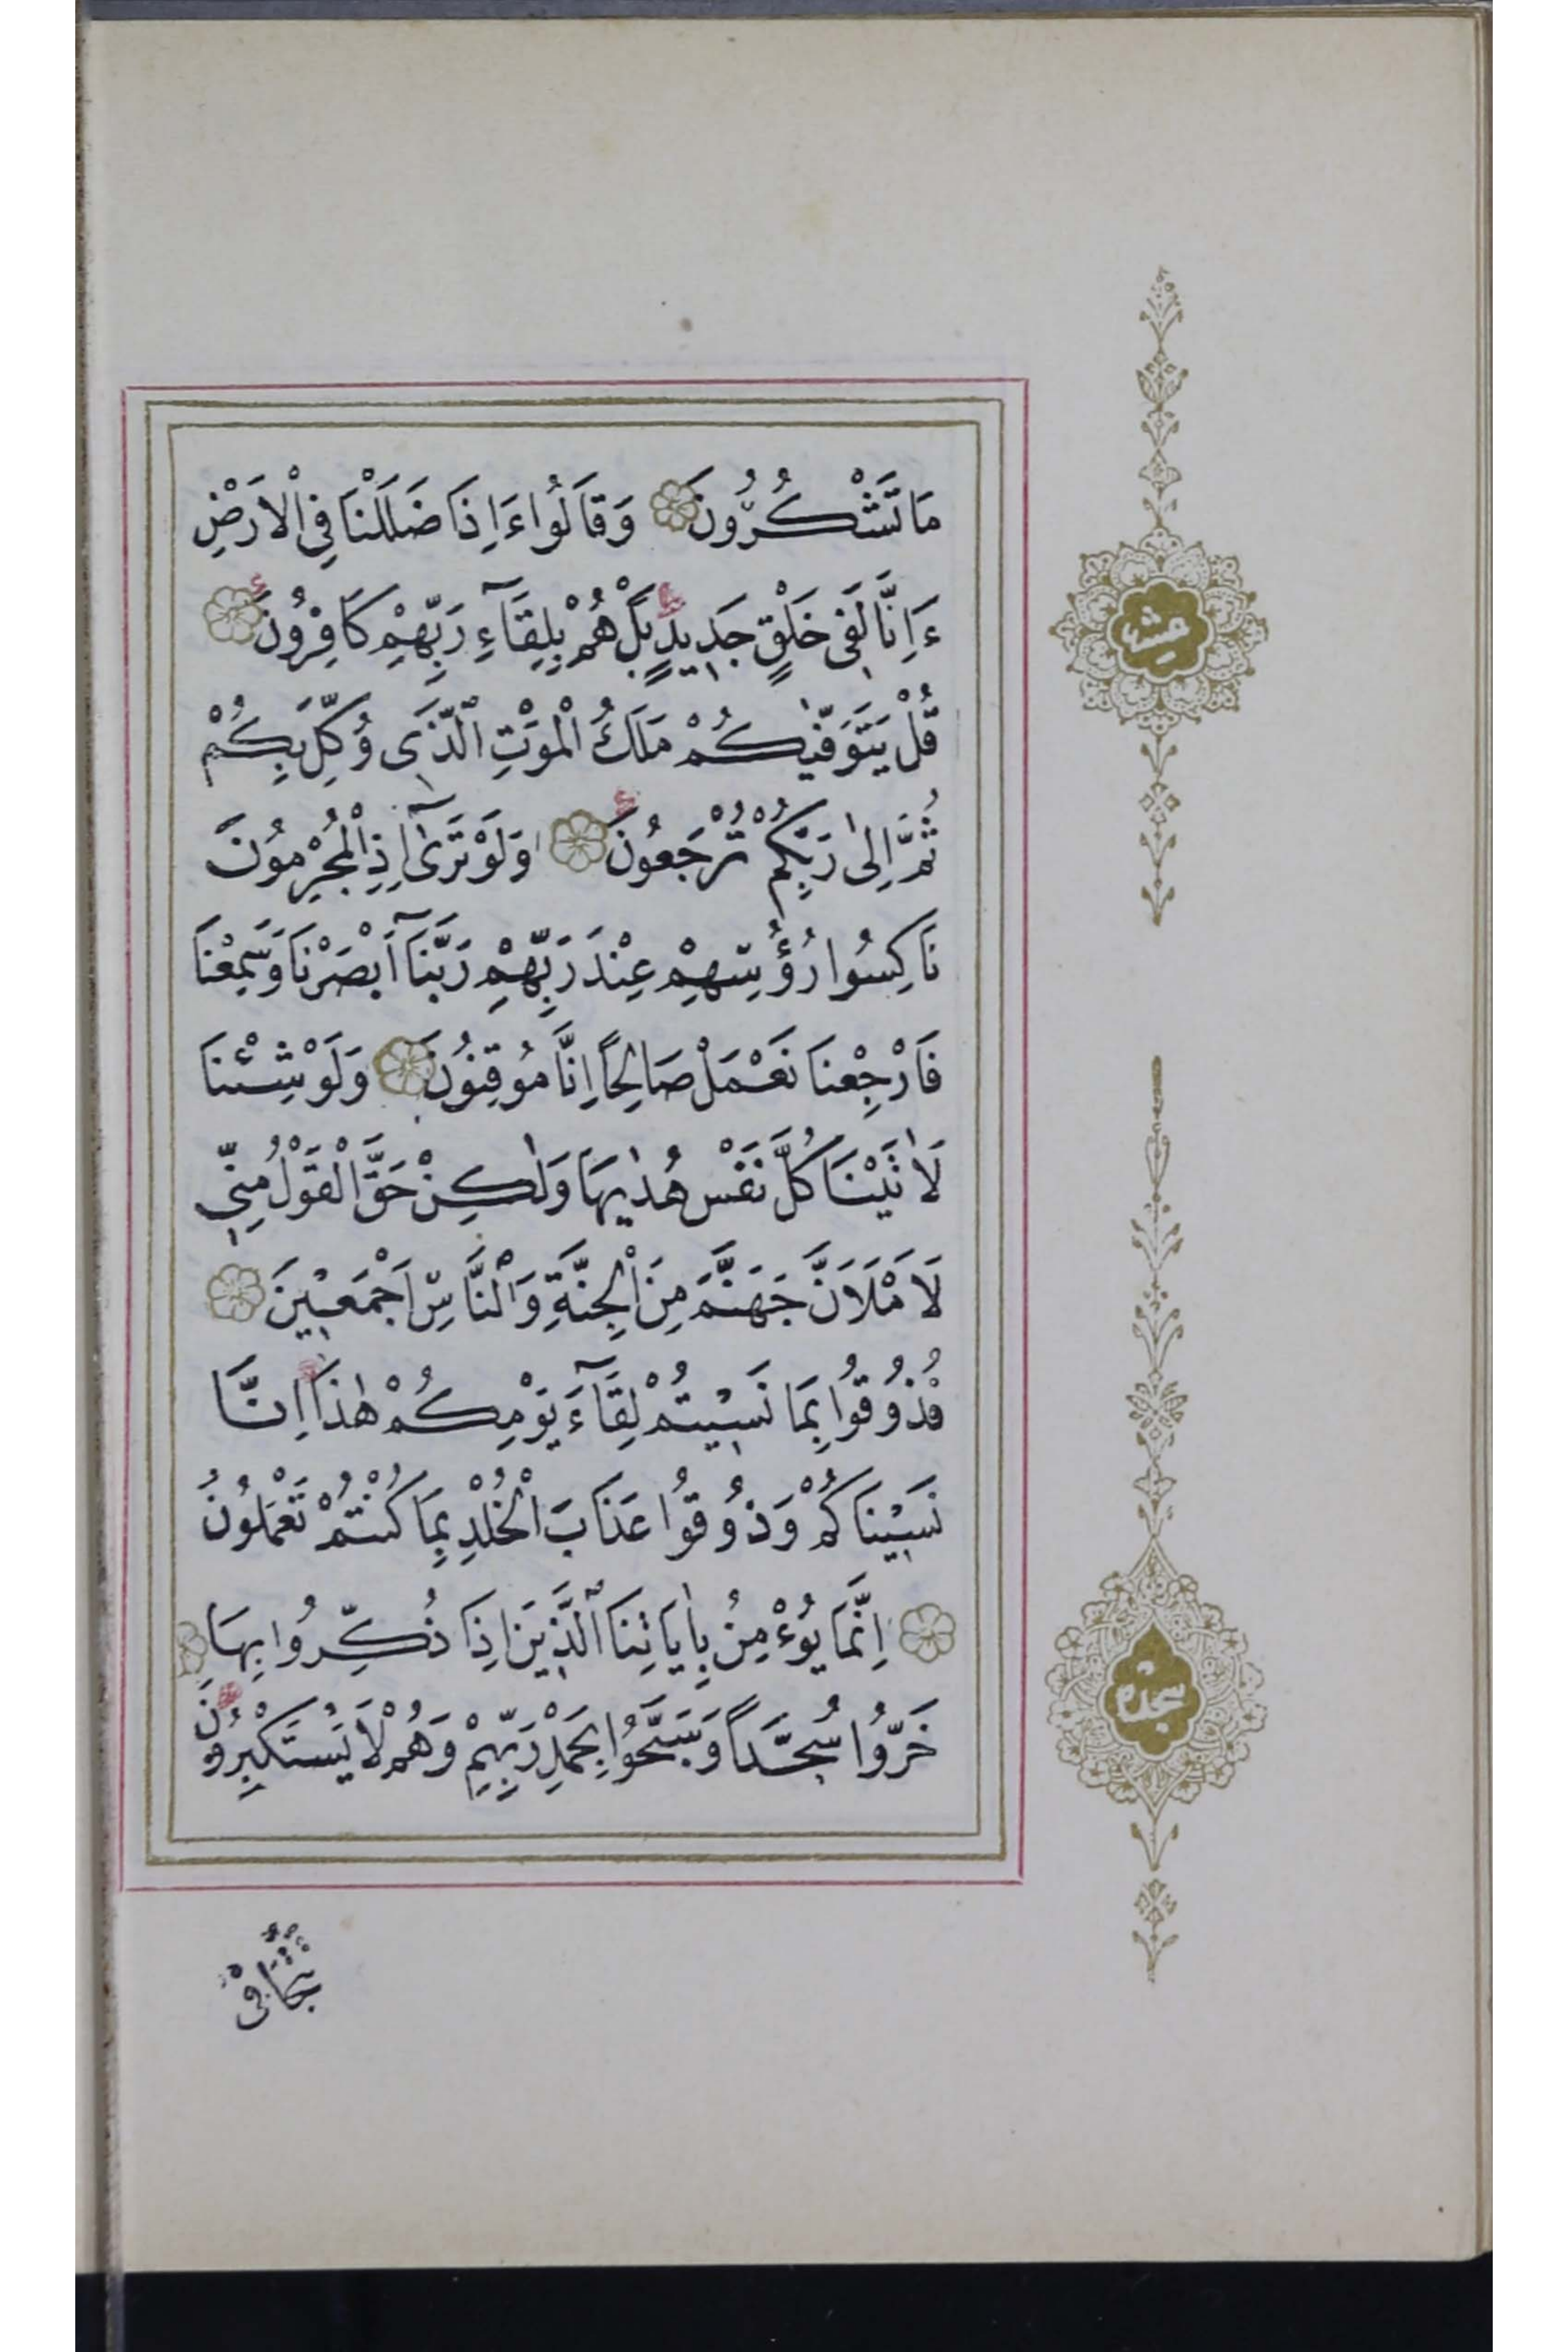 مَا تَشْكُرُونَ وَقَالُوا ءَاِذَا ضَلَلْنَا فِي الْاَرْضِ
ءَاِنَّا لَفِي خَلْقٍ جَدِيدٍ بَلْ هُمْ بِلِقَآءِ رَبِّهِمْ كَافِرُونَ
قُلْ يَتَوَفّٰيكُمْ مَلَكُ الْمَوْتِ الَّذِي وُكِّلَ بِكُمْ
ثُمَّ اِلٰى رَبِّكُمْ تُرْجَعُونَ وَلَوْ تَرٰٓى اِذِ الْمُجْرِمُونَ
نَاكِسُوا رُؤُسِهِمْ عِنْدَ رَبِّهِمْ رَبَّنَآ اَبْصَرْنَا وَسَمِعْنَا
فَارْجِعْنَا نَعْمَلْ صَالِحًا اِنَّا مُوقِنُونَ وَلَوْ شِئْنَا
لَاٰتَيْنَا كُلَّ نَفْسٍ هُدٰيهَا وَلٰكِنْ حَقَّ الْقَوْلُ مِنِّي
لَاَمْلَاَنَّ جَهَنَّمَ مِنَ الْجِنَّةِ وَالنَّاسِ اَجْمَعِينَ
فَذُوقُوا بِمَا نَسِيتُمْ لِقَآءَ يَوْمِكُمْ هٰذَا اِنَّا
نَسِينَاكُمْ وَذُوقُوا عَذَابَ الْخُلْدِ بِمَا كُنْتُمْ تَعْمَلُونَ
اِنَّمَا يُؤْمِنُ بِاٰيَاتِنَا الَّذِينَ اِذَا ذُكِّرُوا بِهَا
خَرُّوا سُجَّدًا وَسَبَّحُوا بِحَمْدِ رَبِّهِمْ وَهُمْ لَا يَسْتَكْبِرُونَ
تَتَجَافٰى
عشر
سجده